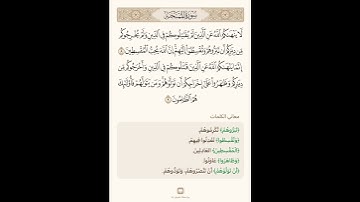 سورة الممتحنة
لَّا يَنْهَىٰكُمُ ٱللَّهُ عَنِ ٱلَّذِينَ لَمْ يُقَٰتِلُوكُمْ فِى ٱلدِّينِ وَلَمْ يُخْرِجُوكُم
مِّن دِيَٰرِكُمْ أَن تَبَرُّوهُمْ وَتُقْسِطُوٓا۟ إِلَيْهِمْ إِنَّ ٱللَّهَ يُحِبُّ ٱلْمُقْسِطِينَ ٨
إِنَّمَا يَنْهَىٰكُمُ ٱللَّهُ عَنِ ٱلَّذِينَ قَٰتَلُوكُمْ فِى ٱلدِّينِ وَأَخْرَجُوكُم مِّن
دِيَٰرِكُمْ وَظَٰهَرُوا۟ عَلَىٰٓ إِخْرَاجِكُمْ أَن تَوَلَّوْهُمْ وَمَن يَتَوَلَّهُمْ فَأُو۟لَٰٓئِكَ
هُمُ ٱلظَّٰلِمُونَ ٩
معاني الكلمات
﴿تَبَرُّوهُمْ﴾ تُكْرِمُوهُمْ.
﴿وَتُقْسِطُوا﴾ تَعْدِلُوا فِيهِمْ.
﴿الْمُقْسِطِينَ﴾ الْعَادِلِينَ.
﴿وَظَاهَرُوا﴾ عَاوَنُوا.
﴿أَن تَوَلَّوْهُمْ﴾ أَنْ تَنْصُرُوهُمْ، وَتَوَدُّوهُمْ.